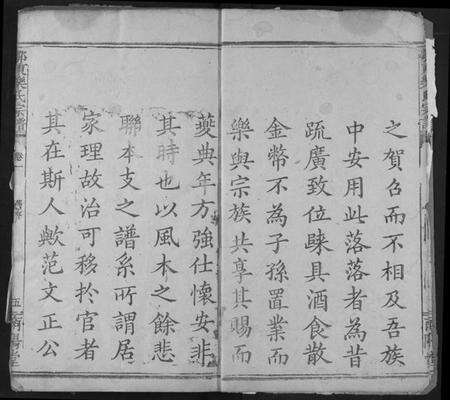 之賀弔而不相及吾族
中安用此落落者為昔
疏廣致位踈具酒食散
金幣不為子孫置業而
樂與宗族共享其賜而
夔典年方強仕懷安非
其時也以風木之餘悲
聯本支之譜系所謂居
家理故治可移扵官者
其在斯人歟范文正公
氏宗譜
卷一
五